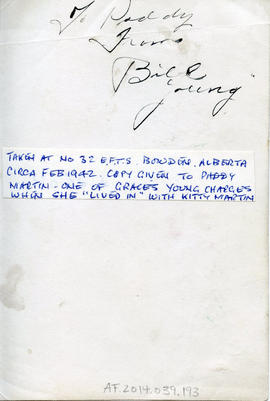 To Paddy
From
Bill
Young
TAKEN AT NO 32 E.F.T.S. BOWDEN. ALBERTA
CIRCA FEB 1942. COPY GIVEN TO PADDY
MARTIN - ONE OF GRACES YOUNG CHARGES
WHEN SHE "LIVED IN" WITH KITTY MARTIN
AF.2014.039.193